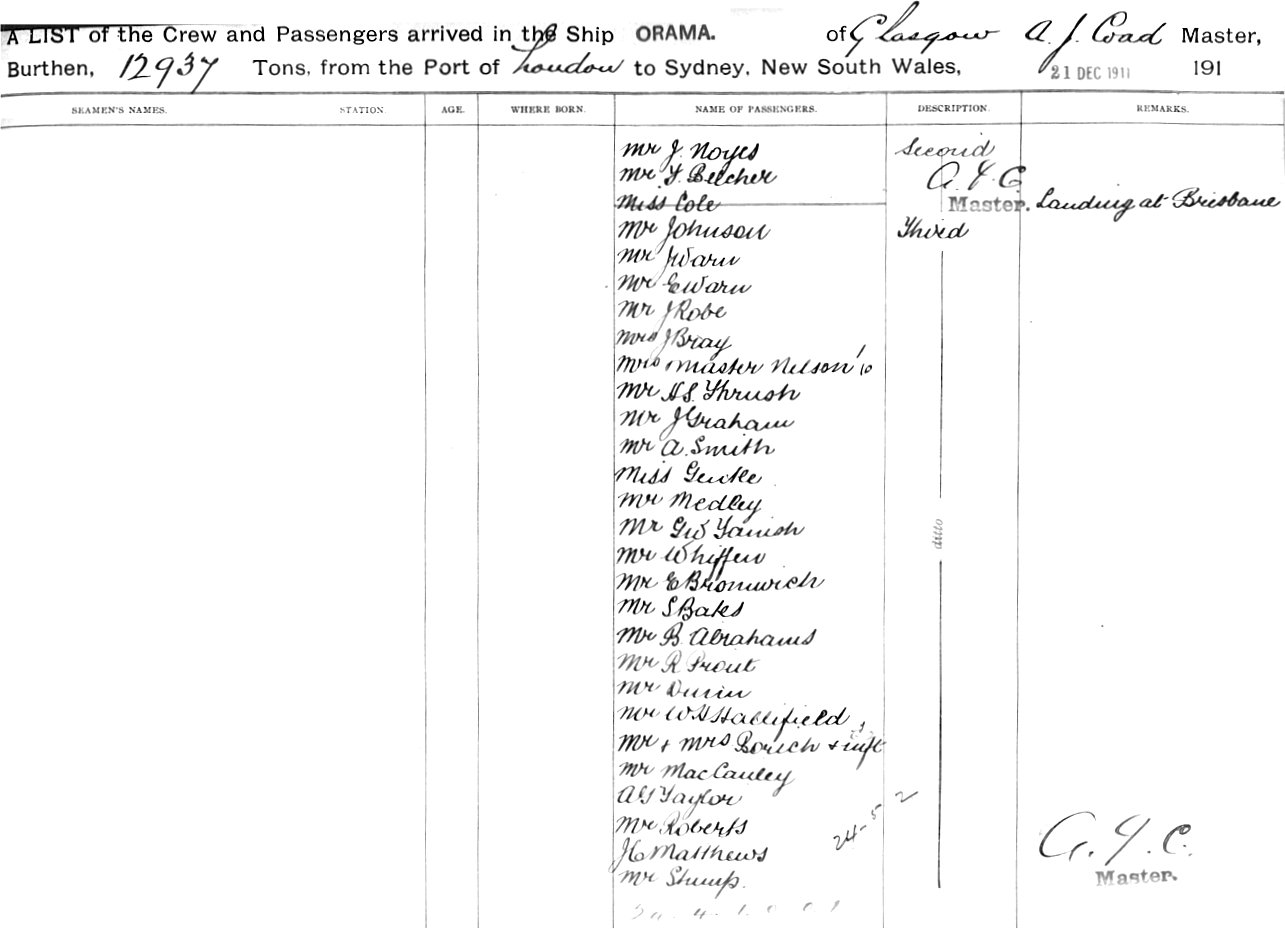 A LIST of the Crew and Passengers arrived in the Ship ORAMA. of Glasgow A. J. Coad Master,
Burthen, 12937 Tons, from the Port of London to Sydney, New South Wales, 21 DEC 1911 191
SEAMEN'S NAMES. STATION. AGE. WHERE BORN. NAME OF PASSENGERS. DESCRIPTION. REMARKS.
Mr J. Noyes Second
Mr F. Belcher A. J. C
Miss Cole Master. Landing at Brisbane
Mr Johnson Third
Mr J Warn
Mr E Warn
Mr J Robe
Mrs J Bray
Mrs & Master Nelson 10
Mr H S. Thrush
Mr J Graham
Mr A. Smith
Miss Gentle
Mr Medley
Mr GW Yanish
ditto
Mr Whiffen
Mr E Bromwich
Mr S Bates
Mr B Abrahams
Mr R Prout
Mr Dunin
Mr W H Hallifield
Mr & Mrs Borich & inft
Mr MacCauley
A G Taylor
Mr Roberts 24-5 2
J C Matthews A. J. C.
Mr Shump. Master.